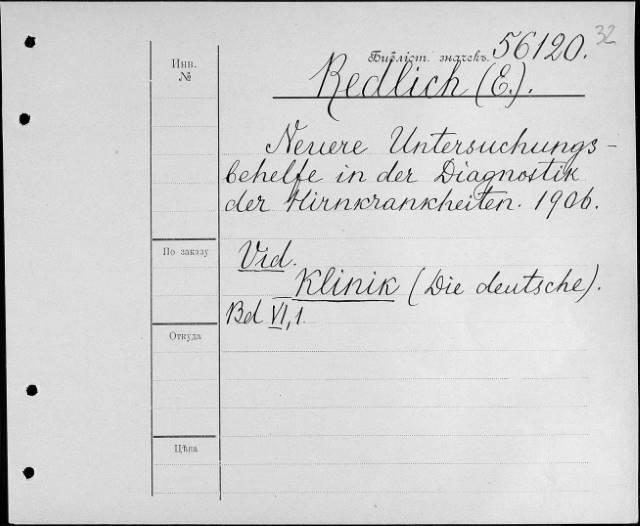 32
Инв.
№
Библіот. значекъ. 56120.
Redlich (E.).
Neuere Untersuchungs-
behelfe in der Diagnostik
der Hirnkrankheiten. 1906.
По заказу
Vid.
Klinik (Die deutsche).
Bd VI,1.
Откуда
Цѣна